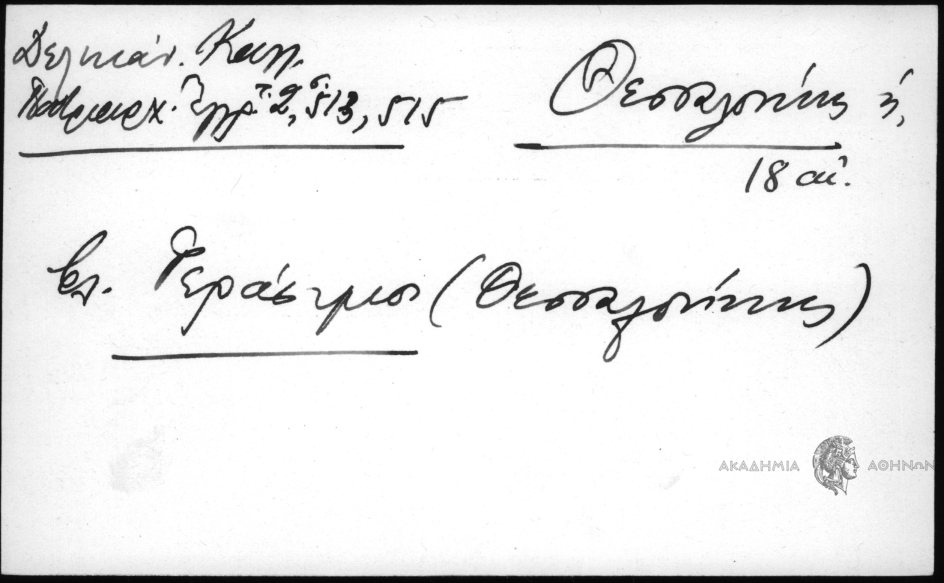 Δελικάν. Καλλ.
Πατριαρχ. Ἔγγρ. τ. 2, σ. 513, 515
Θεσσαλονίκης ἡ,
18 αἰ.
βλ. Γεράσιμος (Θεσσαλονίκης)
ΑΚΑΔΗΜΙΑ ΑΘΗΝΩΝ